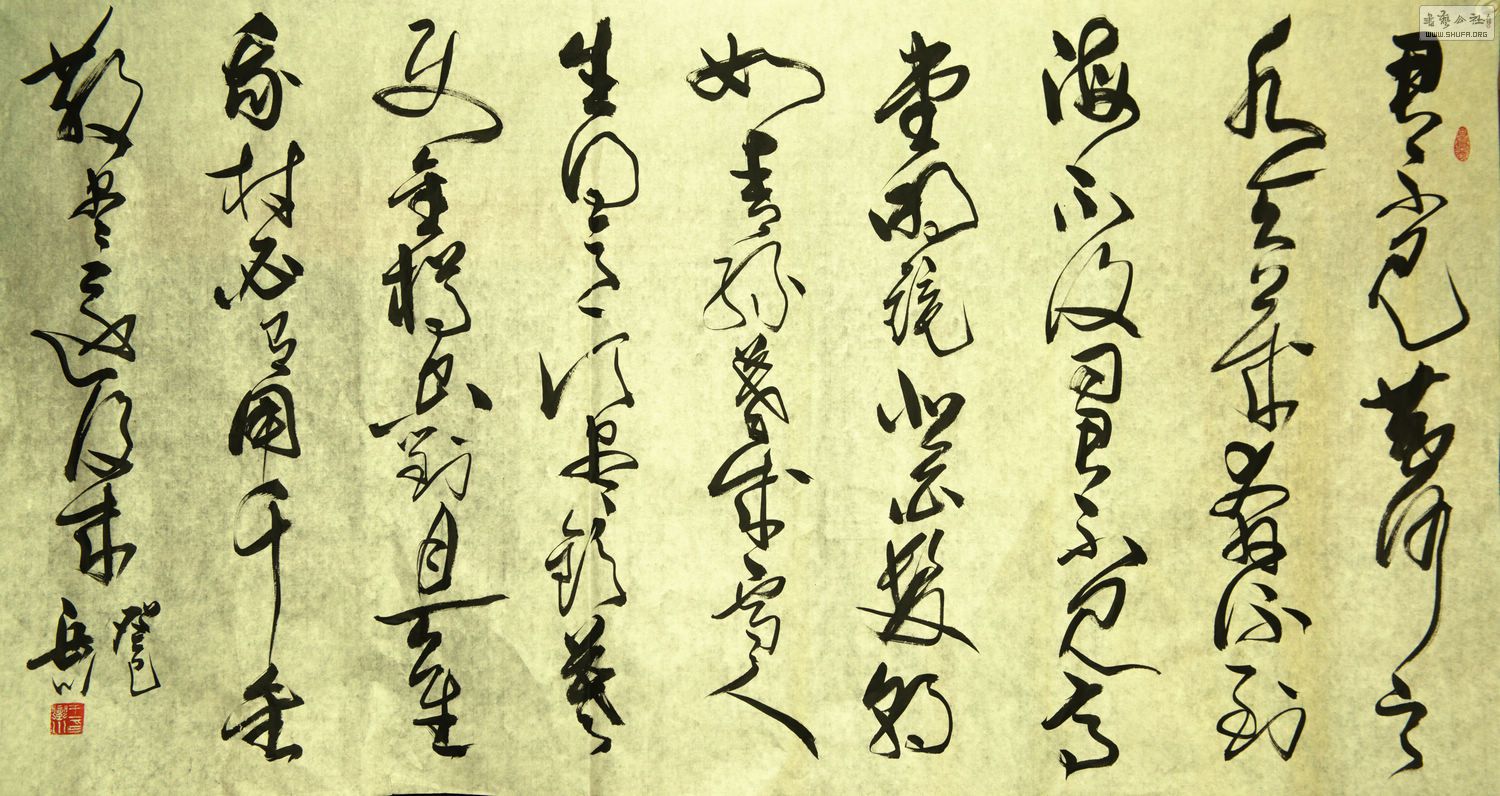 君不見黃河之
水天上來奔流到
海不復回君不見高
堂明鏡悲白髮朝
如青絲暮成雪人
生得意須盡歡莫
使金樽空對月天生
我材必有用千金
散盡還復來
癸巳
岳川
書藝公社
WWW.SHUFA.ORG